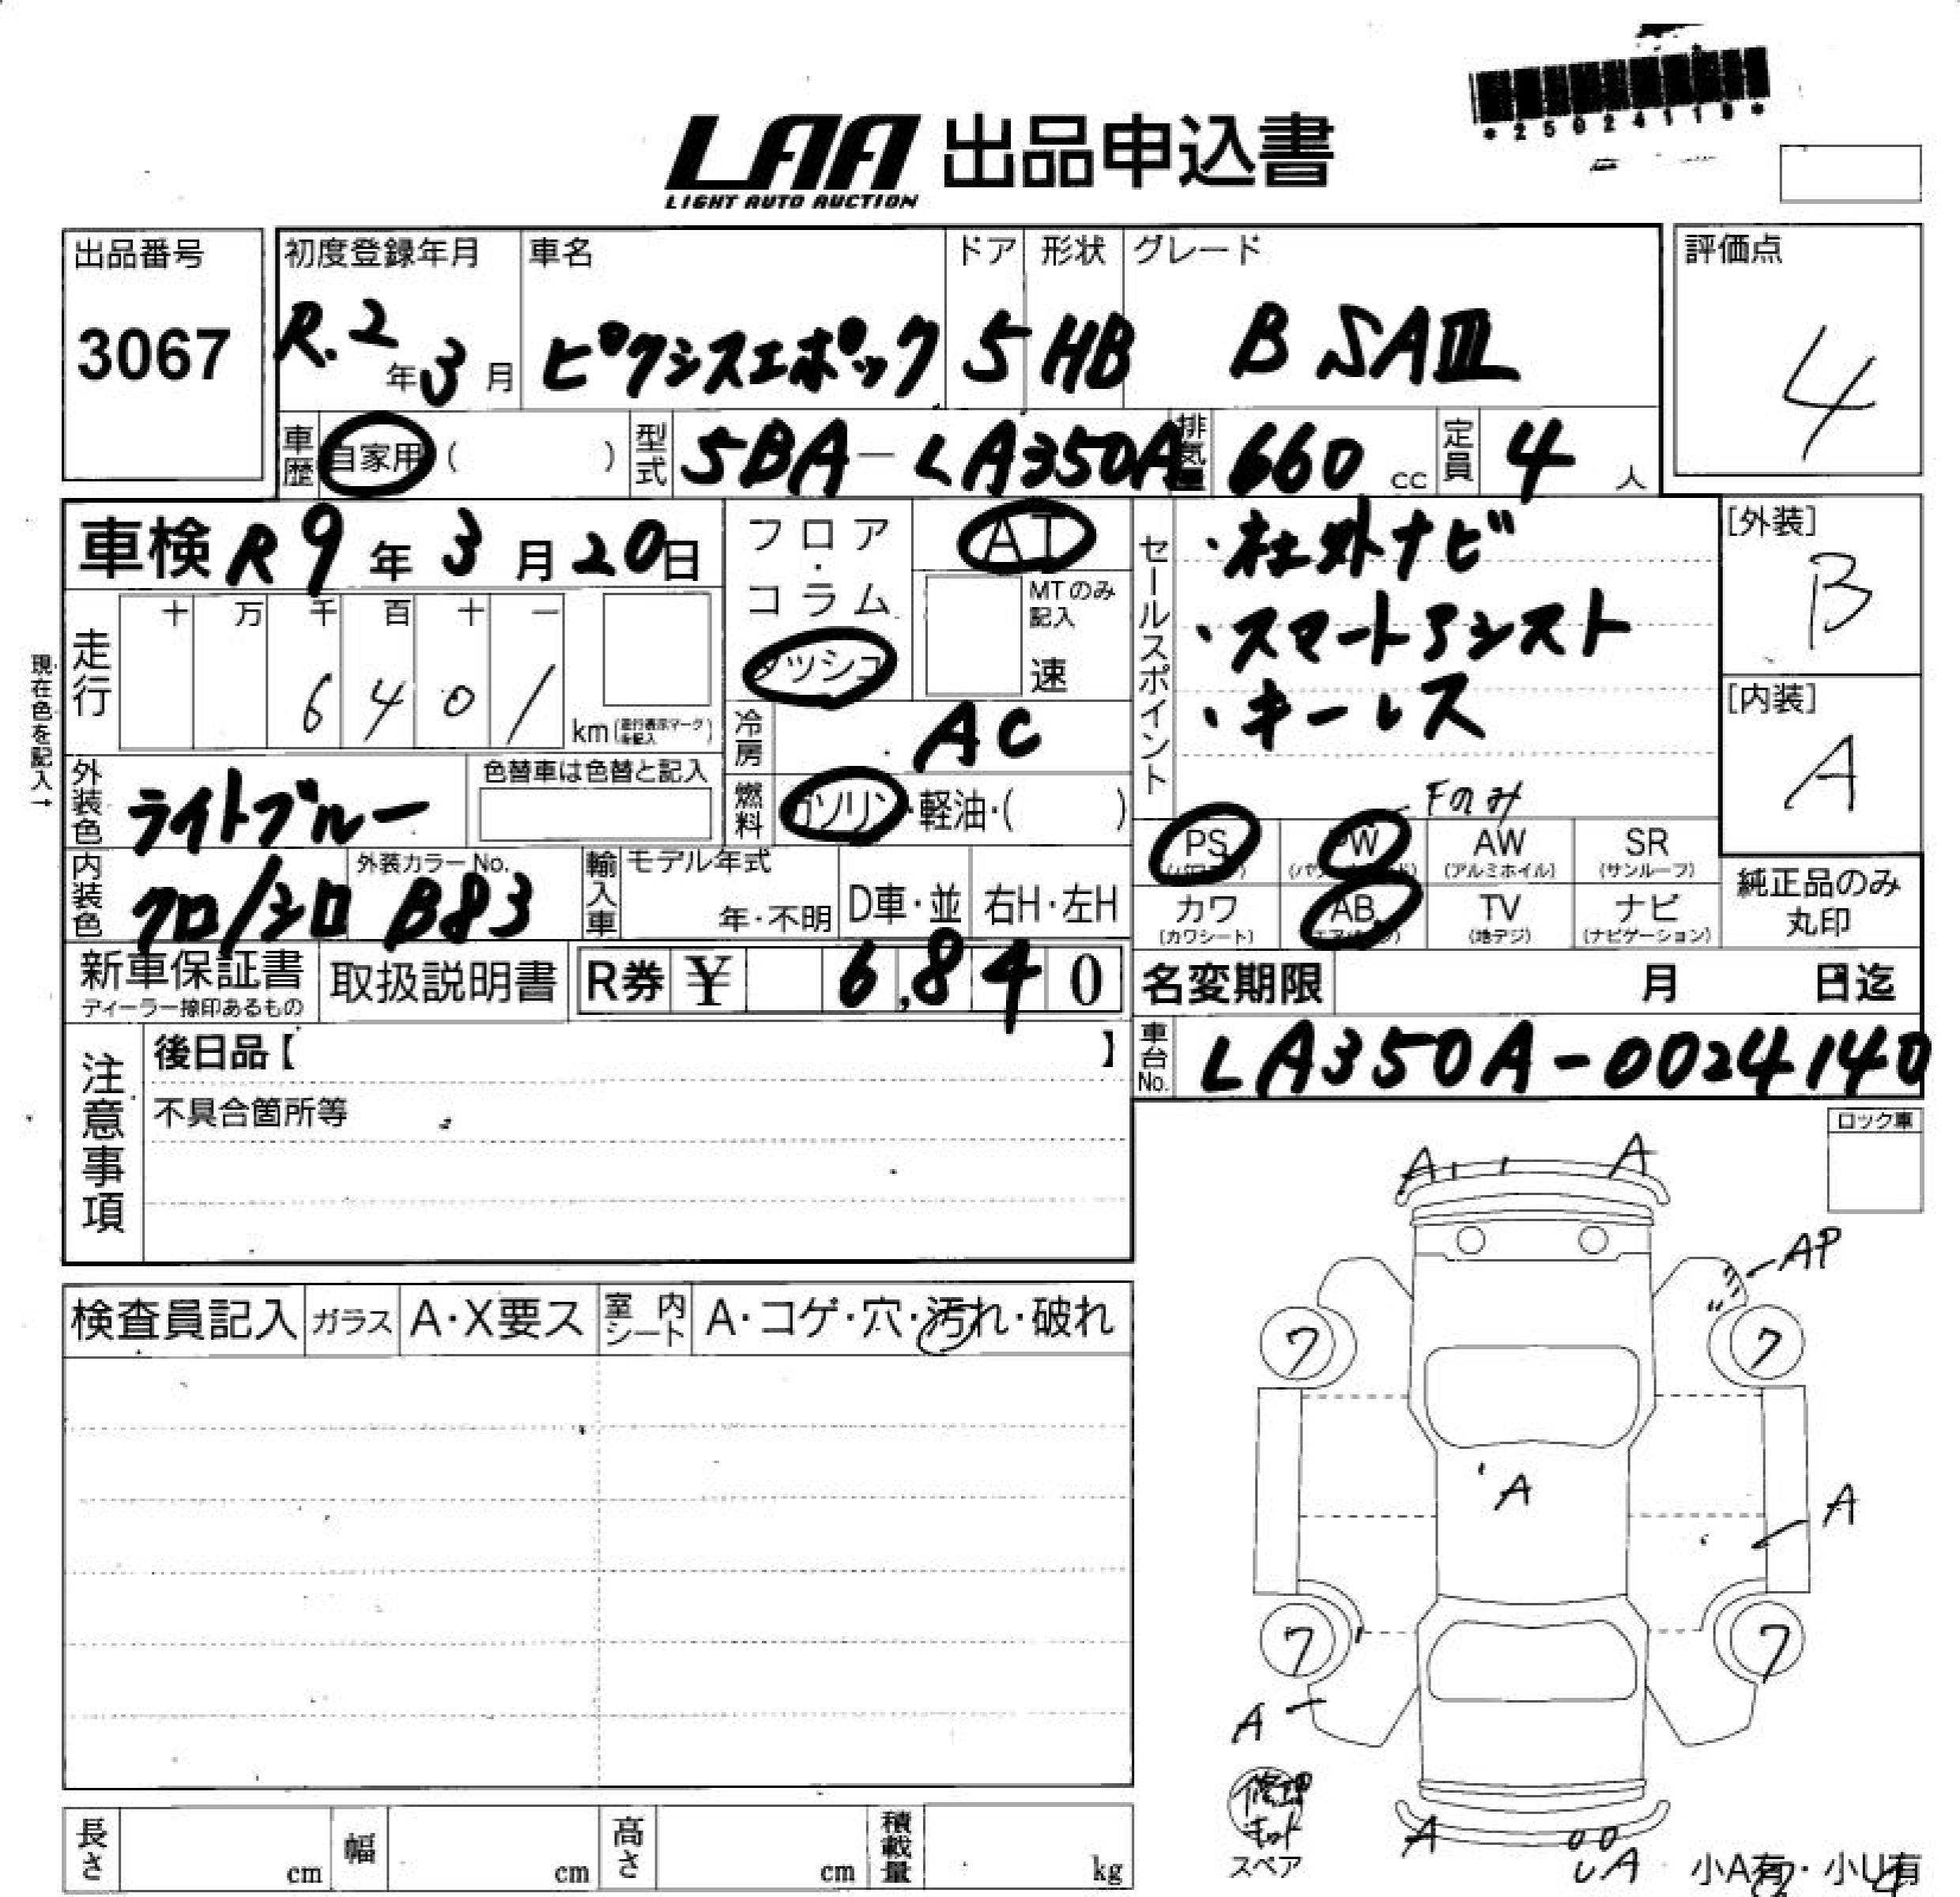 *25024119*
LAA 出品申込書
LIGHT AUTO AUCTION
出品番号
3067
初度登録年月
R.2年3月
車名
ピクシスエポック
ドア
5
形状
HB
グレード
B SAⅢ
評価点
4
車歴 自家用 ( )
型式 5BA-LA350A
排気量 660 cc
定員 4 人
車検 R9年3月20日
走行
十 万 千 百 十 一
6 4 0 1
km (走行表示マークを記入)
現在色を記入→
フロア・コラム
ダッシュ
AT
MTのみ記入
速
冷房 AC
燃料 ガソリン・軽油・( )
セールスポイント
・社外ナビ
・スマートアシスト
・キーレス
Fのみ
[外装]
B
[内装]
A
外装色 ライトブルー
色替車は色替と記入
内装色 クロ/シロ
外装カラーNo.
B83
輸入車 モデル年式
年・不明
D車・並
右H・左H
PS
PW
AW
(アルミホイル)
SR
(サンルーフ)
カワ
(カワシート)
AB
TV
(地デジ)
ナビ
(ナビゲーション)
純正品のみ丸印
新車保証書
ディーラー捺印あるもの
取扱説明書
R券 ¥ 6,840
名変期限 月 日迄
車台No. LA350A-0024140
注意事項
後日品【 】
不具合箇所等
ロック車
検査員記入
ガラス A・X要ス
室内シート A・コゲ・穴・汚れ・破れ
A A
AP
7 7
A
A
7 7
A
修理キット
スペア
A UA
小A有・小U有
長さ cm
幅 cm
高さ cm
積載量 kg